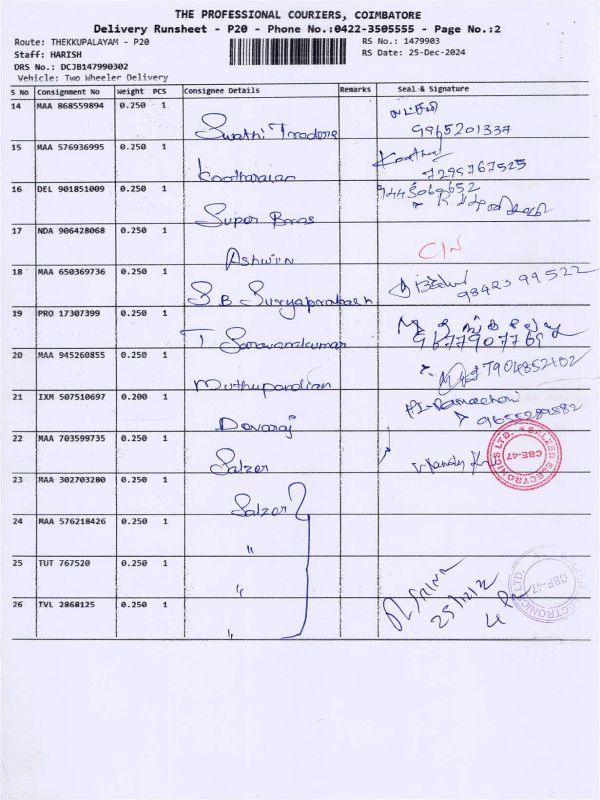 THE PROFESSIONAL COURIERS, COIMBATORE
Delivery Runsheet - P20 - Phone No.:0422-3505555 - Page No.:2
Route: THEKKUPALAYAM - P20
RS No.: 1479903
Staff: HARISH
RS Date: 25-Dec-2024
DRS No.: DCJB147990302
Vehicle: Two Wheeler Delivery
S No Consignment No Weight PCS Consignee Details Remarks Seal & Signature
14 MAA 868559894 0.250 1
Swathi Tradone 9965201337
15 MAA 576936995 0.250 1
7295767525
16 DEL 901851009 0.250 1
Super Bros
17 NDA 906428068 0.250 1
Ashwin C/N
18 MAA 650369736 0.250 1
S B Suryaprakash 9342399522
19 PRO 17307399 0.250 1
T Saravanakumar 9677907769
20 MAA 945260855 0.250 1
Muthupandian 7904852102
21 IXM 507510697 0.200 1
Devaraj 9655289582
22 MAA 703599735 0.250 1
Salzer
SALZER ELECTRONICS LTD. CBE-47
23 MAA 302703280 0.250 1
Salzer
24 MAA 576218426 0.250 1
"
25 TUT 767520 0.250 1
"
ELECTRONICS LTD. CBE-47
26 TVL 2868125 0.250 1
"